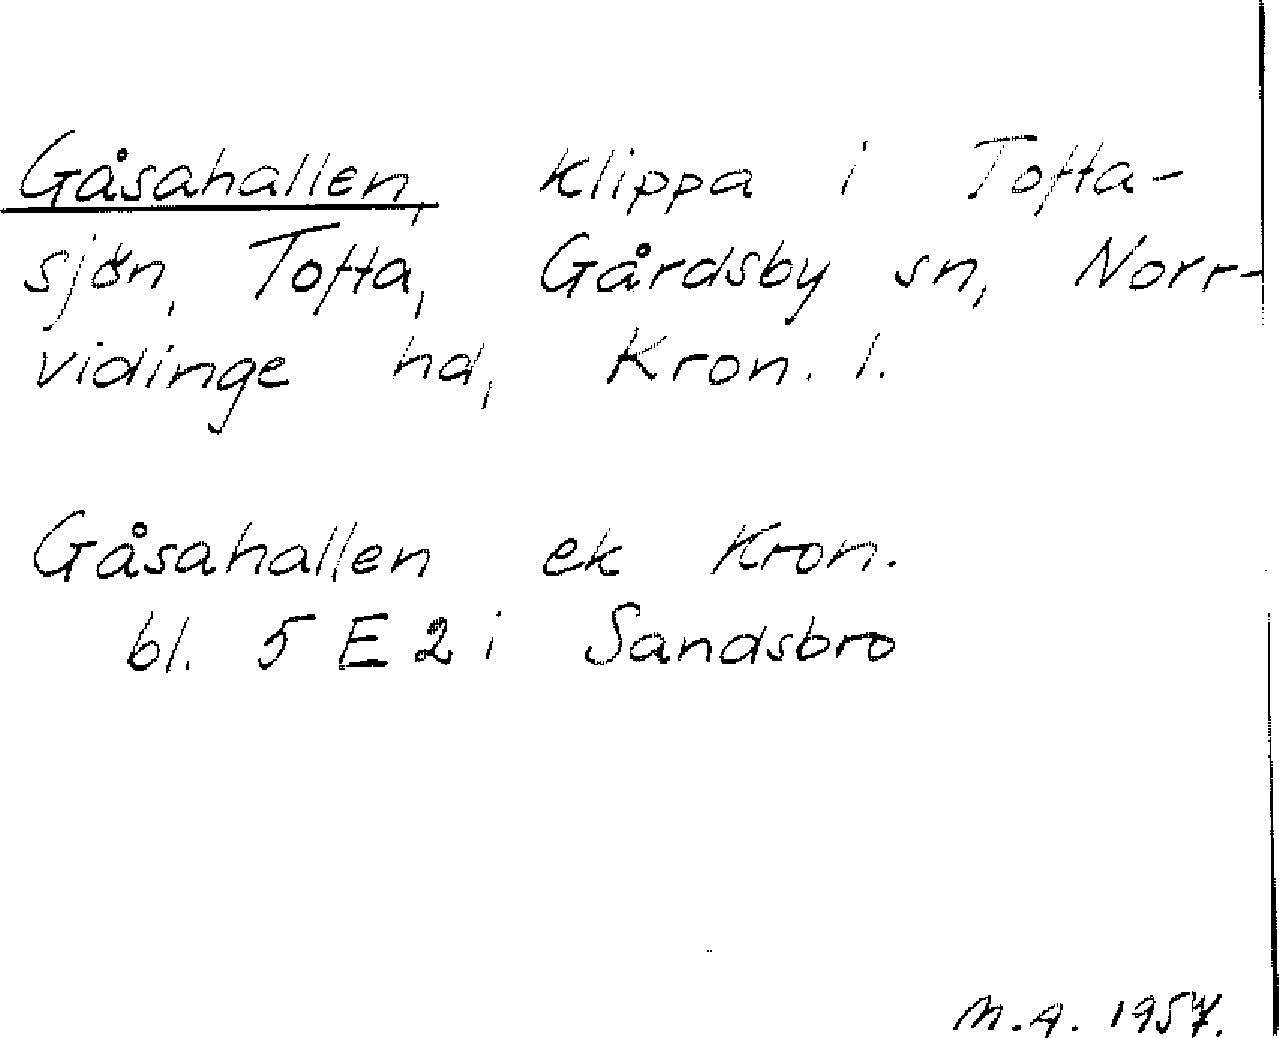 Gåsahallen, klippa i Tofta-
sjön, Tofta, Gårdsby sn, Norr-
vidinge hd, Kron. l.
Gåsahallen ek Kron.
bl. 5 E 2 i Sandsbro
M.A. 1957.